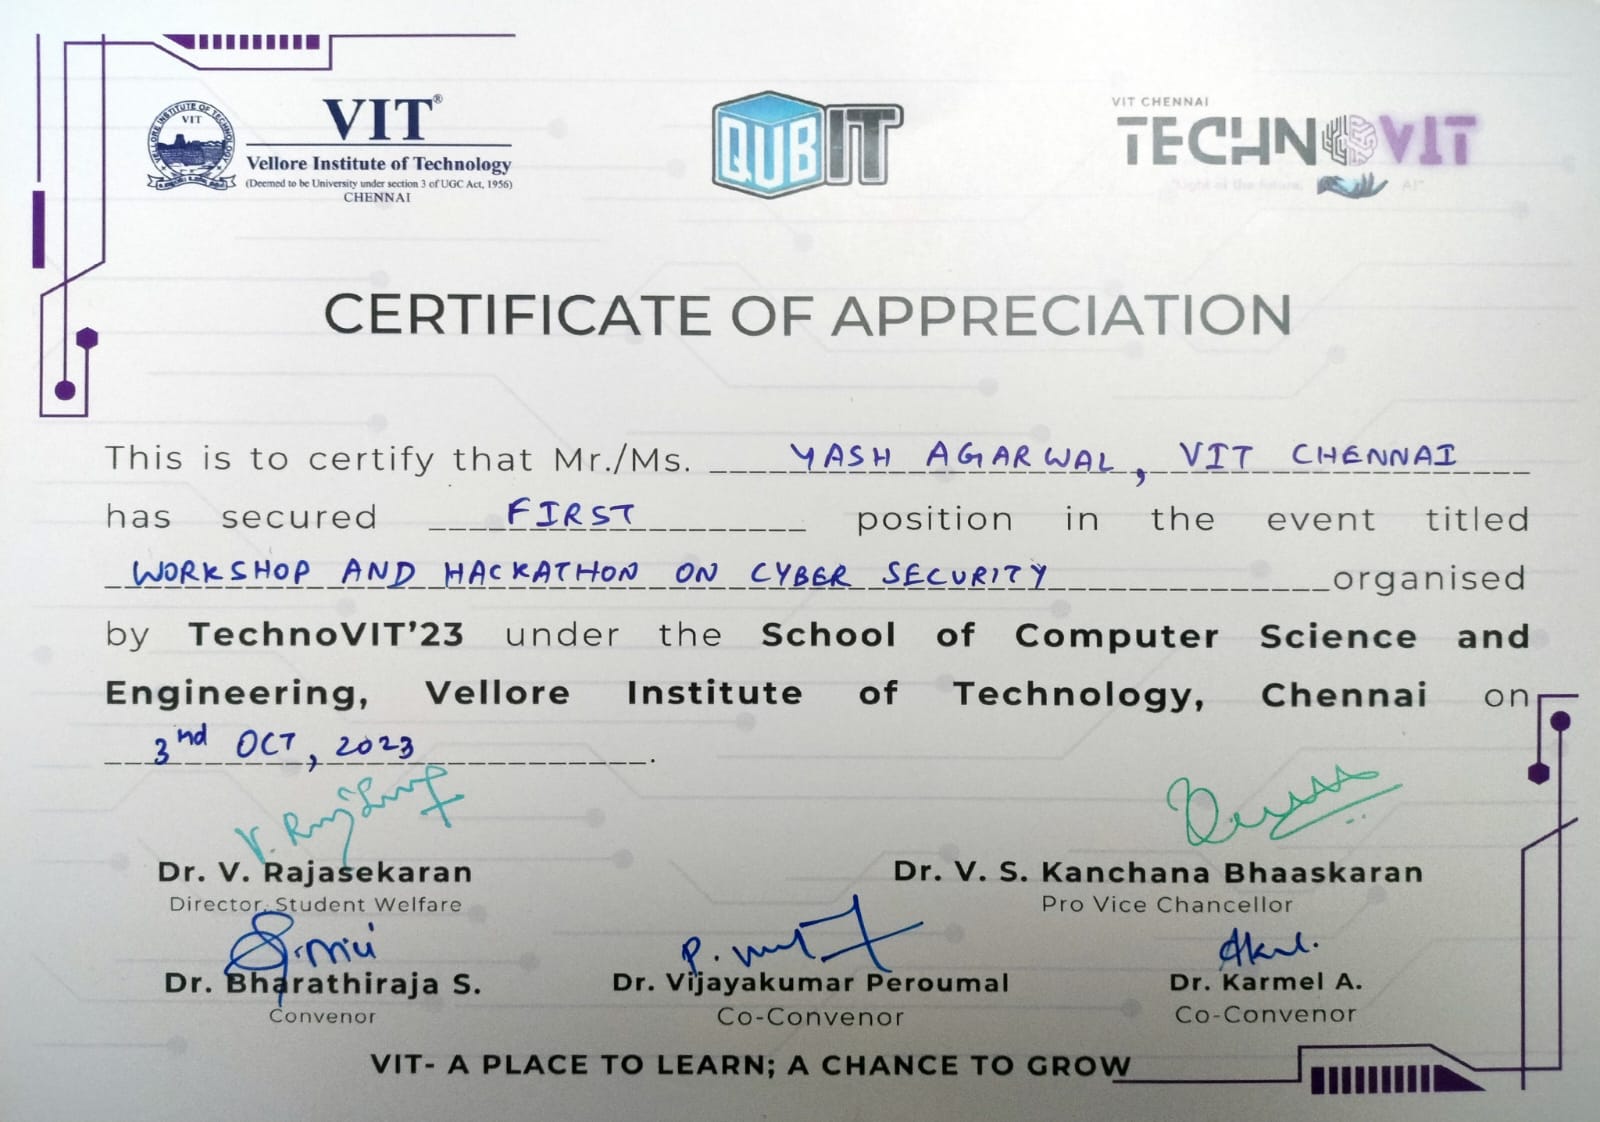 VIT®
VELLORE INSTITUTE OF TECHNOLOGY
VIT
Vellore Institute of Technology
(Deemed to be University under section 3 of UGC Act, 1956)
CHENNAI
QUBIT
VIT CHENNAI
TECHNOVIT
"Light of the future, AI"
CERTIFICATE OF APPRECIATION
This is to certify that Mr./Ms. YASH AGARWAL, VIT CHENNAI
has secured FIRST position in the event titled
WORKSHOP AND HACKATHON ON CYBER SECURITY organised
by TechnoVIT'23 under the School of Computer Science and
Engineering, Vellore Institute of Technology, Chennai on
3nd OCT, 2023.
Dr. V. Rajasekaran
Director, Student Welfare
Dr. V. S. Kanchana Bhaaskaran
Pro Vice Chancellor
Dr. Bharathiraja S.
Convenor
Dr. Vijayakumar Peroumal
Co-Convenor
Dr. Karmel A.
Co-Convenor
VIT- A PLACE TO LEARN; A CHANCE TO GROW